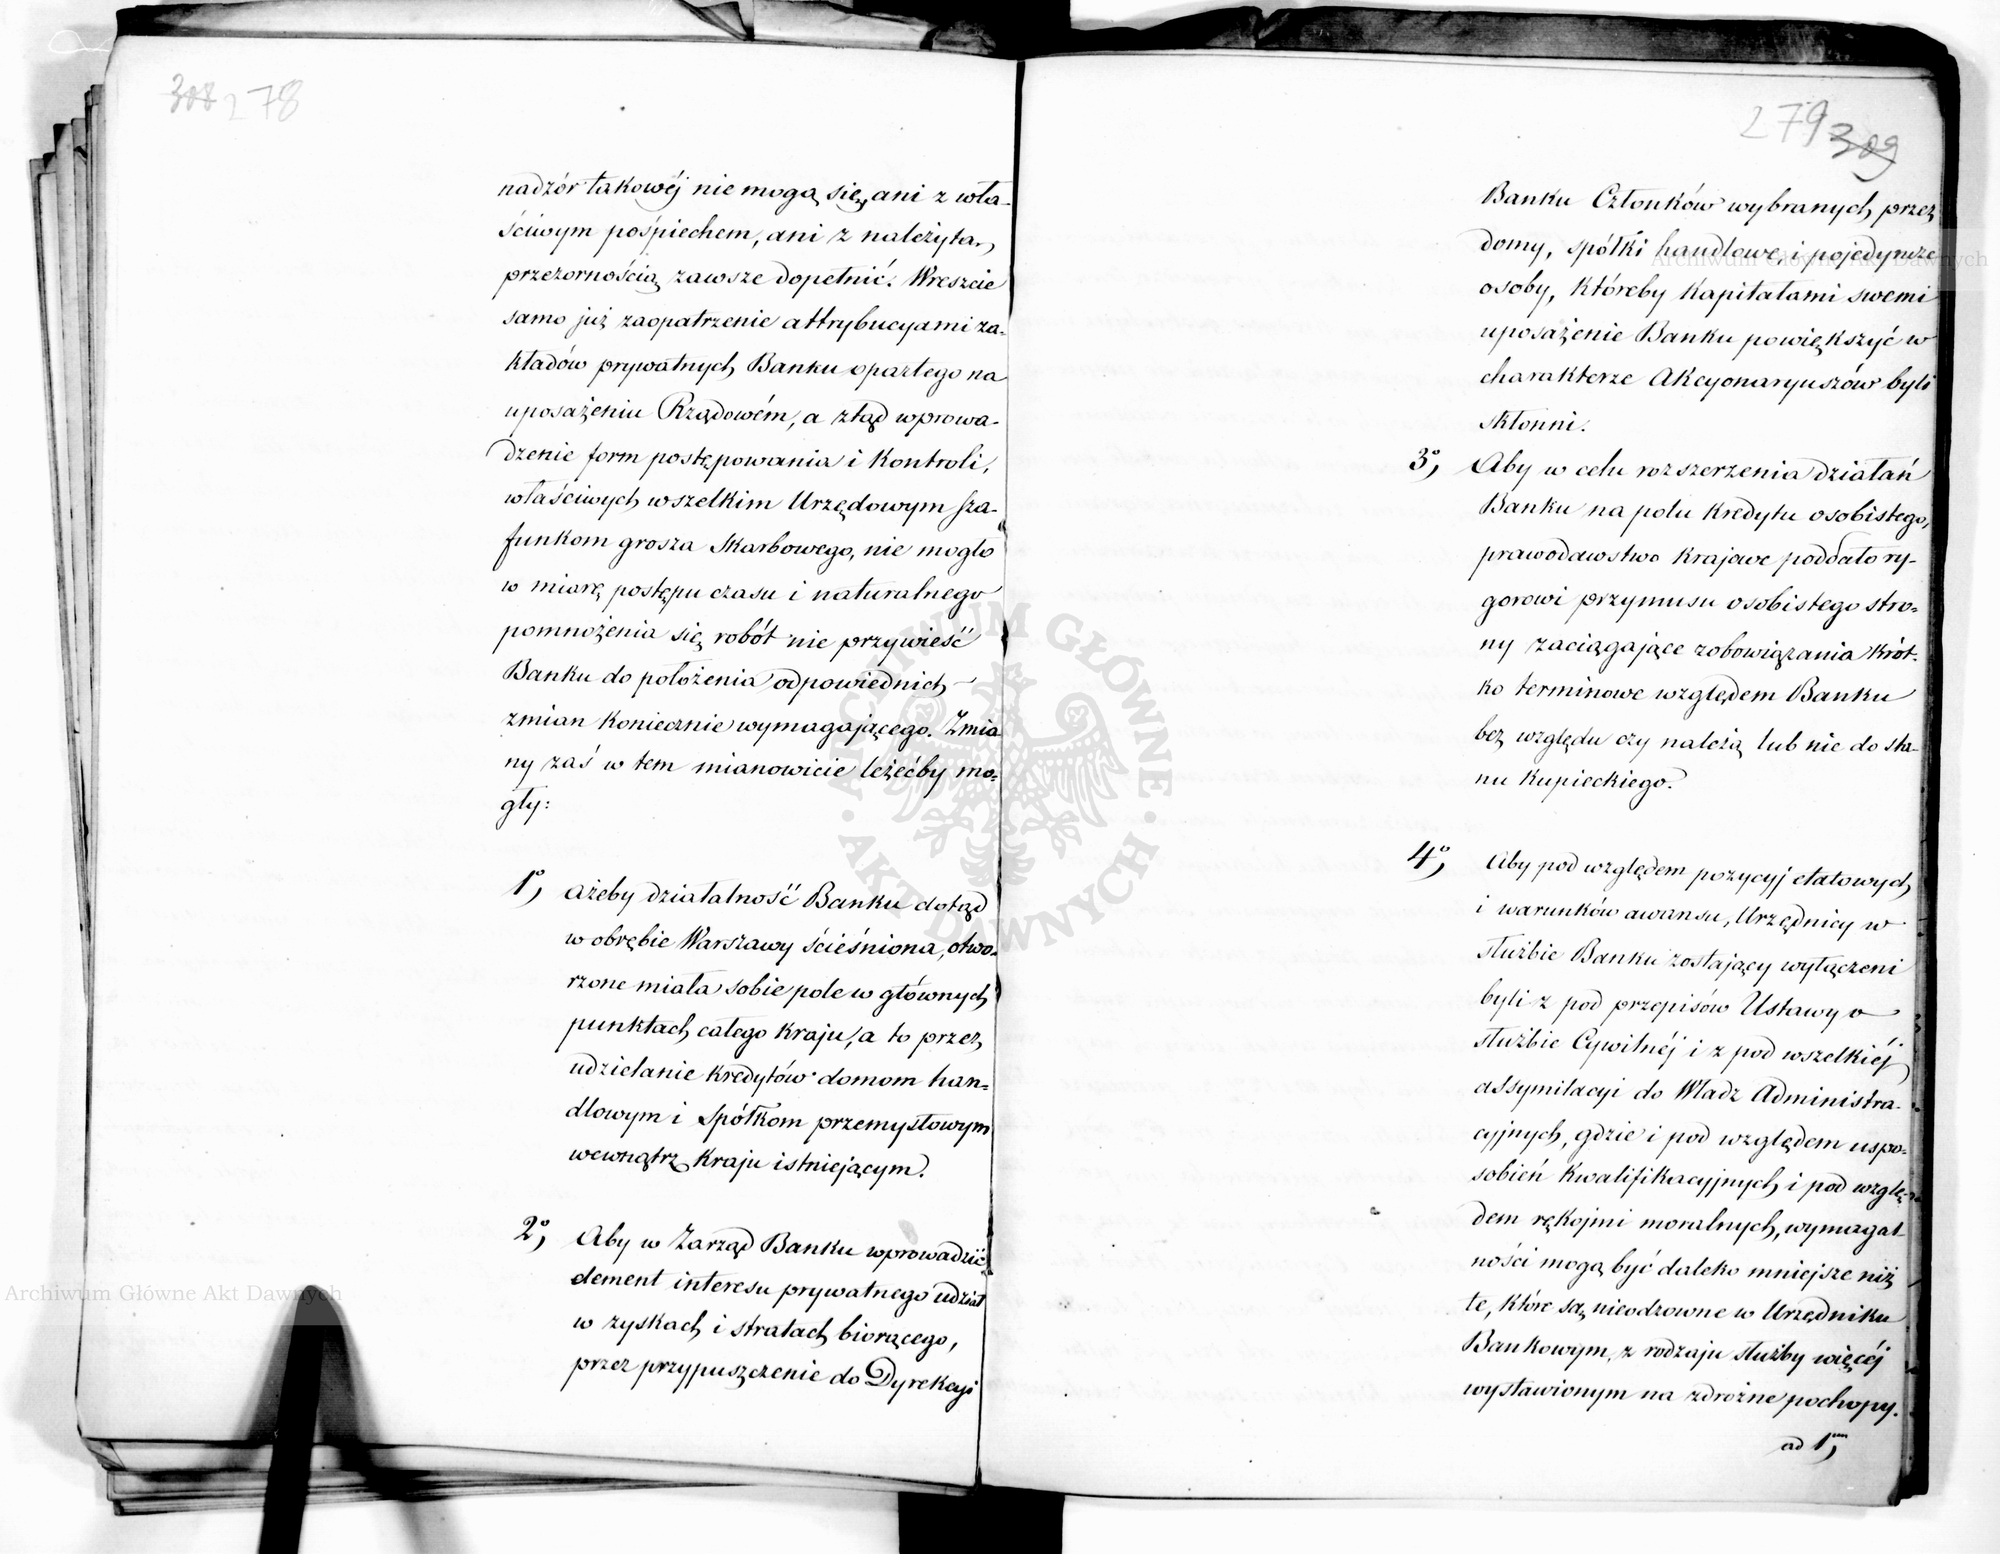 308 278
nadzór takowéj nie mogą się, ani z wła-
ściwym pośpiechem, ani z należytą,
przezornością zawsze dopełnić. Wreszcie
samo już zaopatrzenie attrybucyami za-
kładów prywatnych Banku opartego na
uposażeniu Rządowém, a ztąd wprowa-
dzenie form postępowania i Kontroli,
właściwych wszelkim Urzędowym sza-
funkom grosza Skarbowego, nie mogło
w miarę postępu czasu i naturalnego
pomnożenia się robót nie przywieść
Banku do położenia odpowiednich
zmian Koniecznie wymagającego. Zmia
ny zaś w tem mianowicie leżećby mo-
gły:
1º, ażeby działalność Banku dotąd
w obrębie Warszawy ścieśniona, otwo-
rzone miała sobie pole w głównych
punktach całego Kraju, a to przez
udzielanie Kredytów domom han-
dlowym i Spółkom przemysłowym
wewnątrz Kraju istniejącym.
2º, Aby w Zarząd Banku wprowadzić
element interesu prywatnego udział
w zyskach i stratach biorącego,
przez przypuszczenie do Dyrekcyi
279 309
Banku Członków wybranych przez
domy, spółki handlowe, i pojedyncze
osoby, któreby Kapitałami swemi
uposażenie Banku powiększyć w
charakterze Akcyonaryuszów byli
skłonni.
3º, Aby w celu rozszerzenia działań
Banku na polu Kredytu osobistego,
prawodawstwo Krajowe poddało ry-
gorowi przymusu osobistego stro-
ny zaciągające zobowiązania Krót-
ko terminowe względem Banku
bez względu czy należą lub nie do sta-
nu Kupieckiego.
4º, Aby pod względem pozycyj etatowych
i warunków awansu, Urzędnicy w
służbie Banku zostający wyłączeni
byli z pod przepisów Ustawy o
służbie Cywilnéj i z pod wszelkiéj
assymilacyi do Władz Administra-
cyjnych, gdzie i pod względem uspo-
sobień Kwalifikacyjnych, i pod wzglę-
dem rękojmi moralnych, wymagal-
ności mogą być daleko mniejsze niż
te, które są nieodzowne w Urzędniku
Bankowym, z rodzaju służby więcéj
wystawionym na zdrożne pochopy.
ad 1um,
ARCHIWUM GŁÓWNE
AKT DAWNYCH
Archiwum Główne Akt Dawnych
Archiwum Główne Akt Dawnych